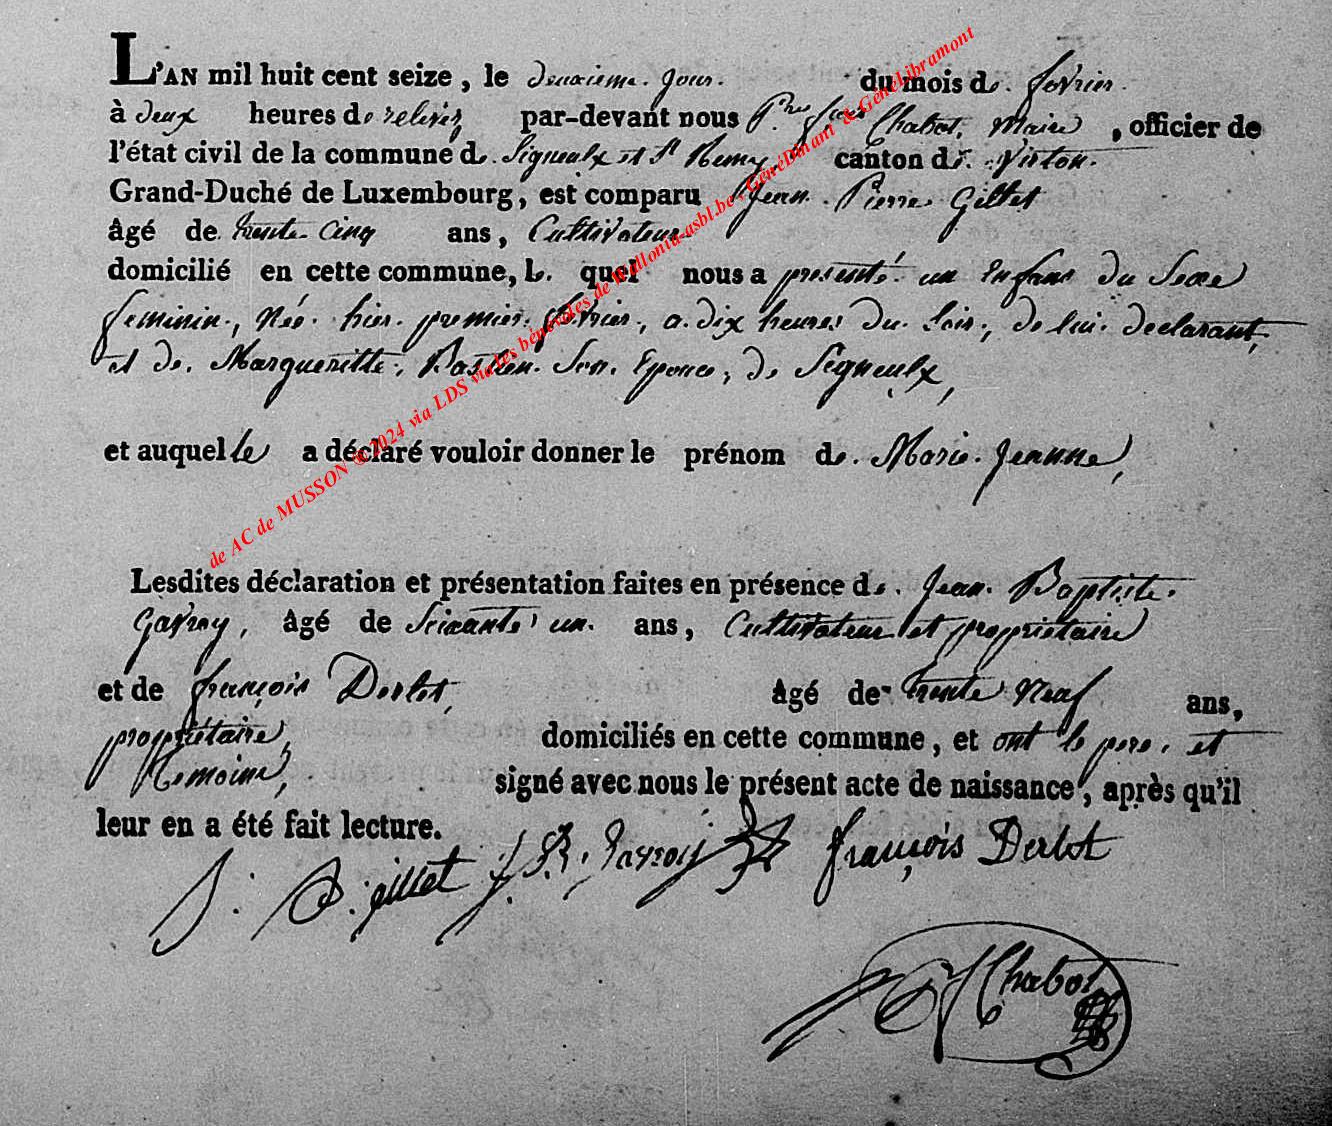 L'AN mil huit cent seize, le deuxieme jour. du mois de fevrier.
à deux heures de relevez par-devant nous P.rre f.cois Chabot, Maire, officier de
l'état civil de la commune de Signeulx et S.t Remy, canton de Virton.
Grand-Duché de Luxembourg, est comparu Jean Pierre Gillet
âgé de trente cinq ans, Cultivateur
domicilié en cette commune, le quel nous a presenté un Enfant du Sexe
feminin, Née hier premier fevrier, a dix heures du Soir, de lui declarant,
et de Margueritte, Bastien Son Epouce, de Signeulx,
et auquel le a déclaré vouloir donner le prénom de Marie Jeanne,
Lesdites déclaration et présentation faites en présence de Jean Baptiste
Gavroy, âgé de Soixante un ans, Cultivateur et propriétaire
et de françois Derlot, âgé de trente Neuf ans,
propriétaire, domiciliés en cette commune, et ont le pere, et
temoins, signé avec nous le présent acte de naissance, après qu'il
leur en a été fait lecture.
J. P. gillet J. B. Gavroy françois Derlot
Chabot
de AC de MUSSON ®2024 via LDS via les bénévoles de Wallonia-asbl.be - GénéDinant & GénéLibramont